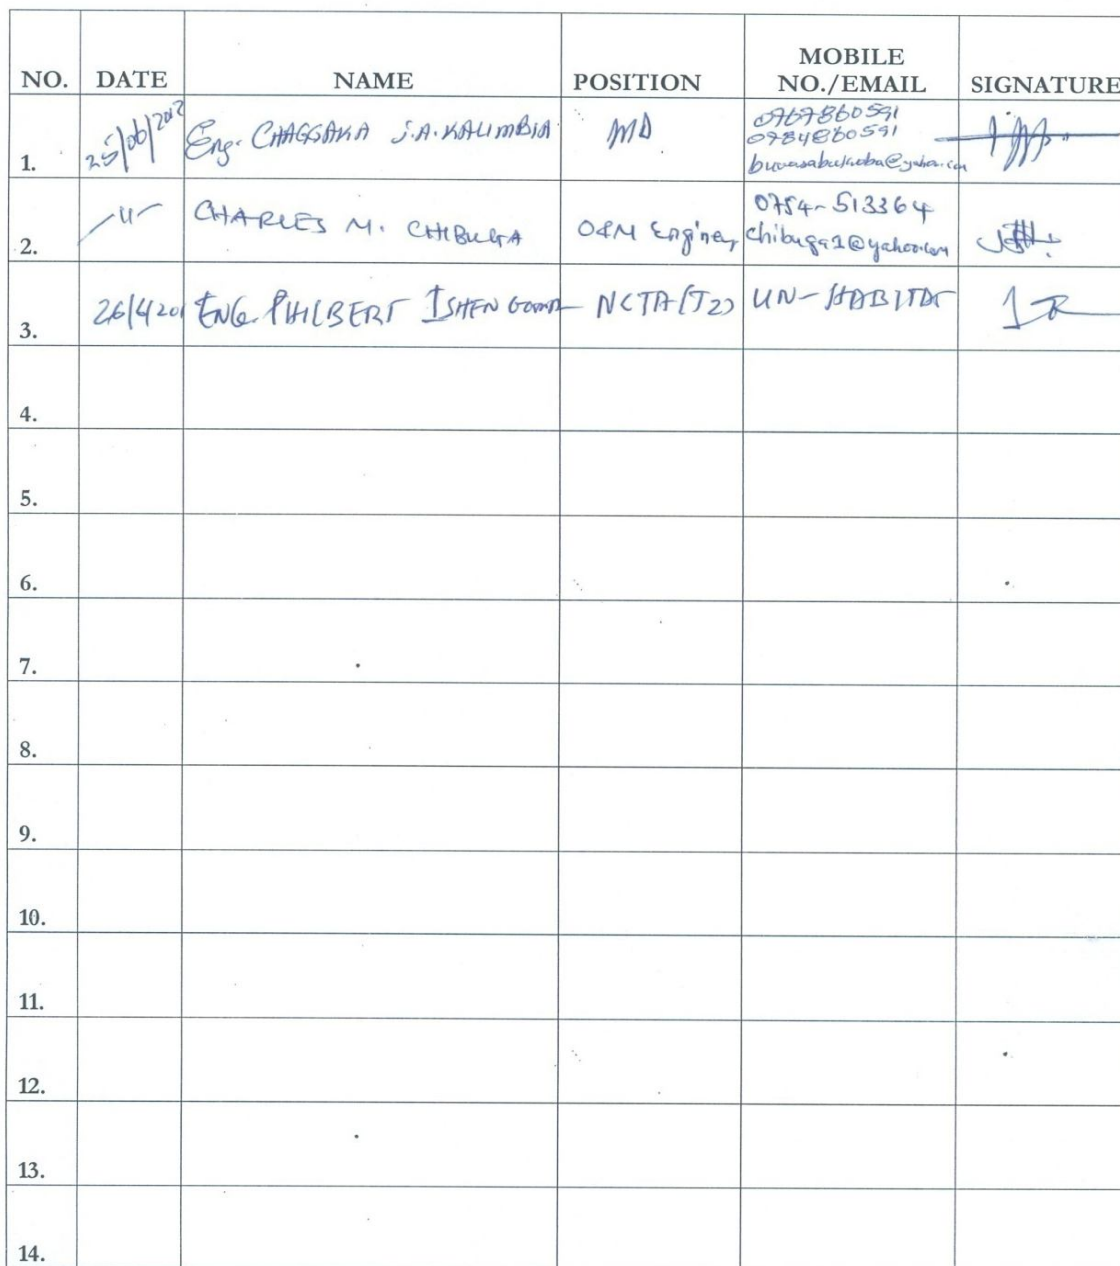 NO. DATE NAME POSITION MOBILE NO./EMAIL SIGNATURE
1. 25/06/2012 Eng. CHAGGAKA J.A. KALIMBIA MD 0767860591
0784860591
buwasabukoba@yahoo.com
2. -11- CHARLES M. CHIBUGA O&M Engineer 0754-513364
chibuga1@yahoo.com
3. 26/4/201 ENG. PHILBERT ISHENGOMA NCTA(TZ) UN-HABITAT
4.
5.
6.
7.
8.
9.
10.
11.
12.
13.
14.